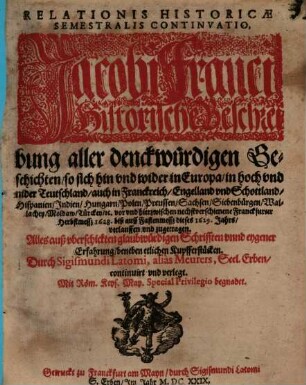 RELATIONIS HISTORICÆ
SEMESTRALIS CONTINVATIO,
Jacobi Franci
Historische Beschrei
bung aller denckwürdigen Ge-
schichten/ so sich hin vnd wider in Europa/ in hoch vnd
nider Teutschland/ auch in Franckreich/ Engelland vnd Schottland/
Hispanien/ Indien/ Hungarn/ Polen/ Preussen/ Sachsen/ Siebenbürgen/ Wal-
lachey/ Moldaw/ Türckey/ ꝛc. vor vnd hierzwischen nechstverschienene Franckfurter
Herbstmeß/ 1628. biß auff Fastenmeß dieses 1629. Jahrs/
verlauffen vnd zugetragen.
Alles auß vberschickten glaubwürdigen Schrifften vnnd eygener
Erfahrung/ beneben etlichen Kupfferstücken.
Durch Sigismundi Latomi, alias Meurers, Seel. Erben/
continuirt vnd verlegt.
Mit Röm. Keys. May. Special Privilegio begnadet.
Getruckt zu Franckfurt am Mayn/ durch Sigismundi Latomi
S. Erben/ Im Jahr M. DC XXIX.